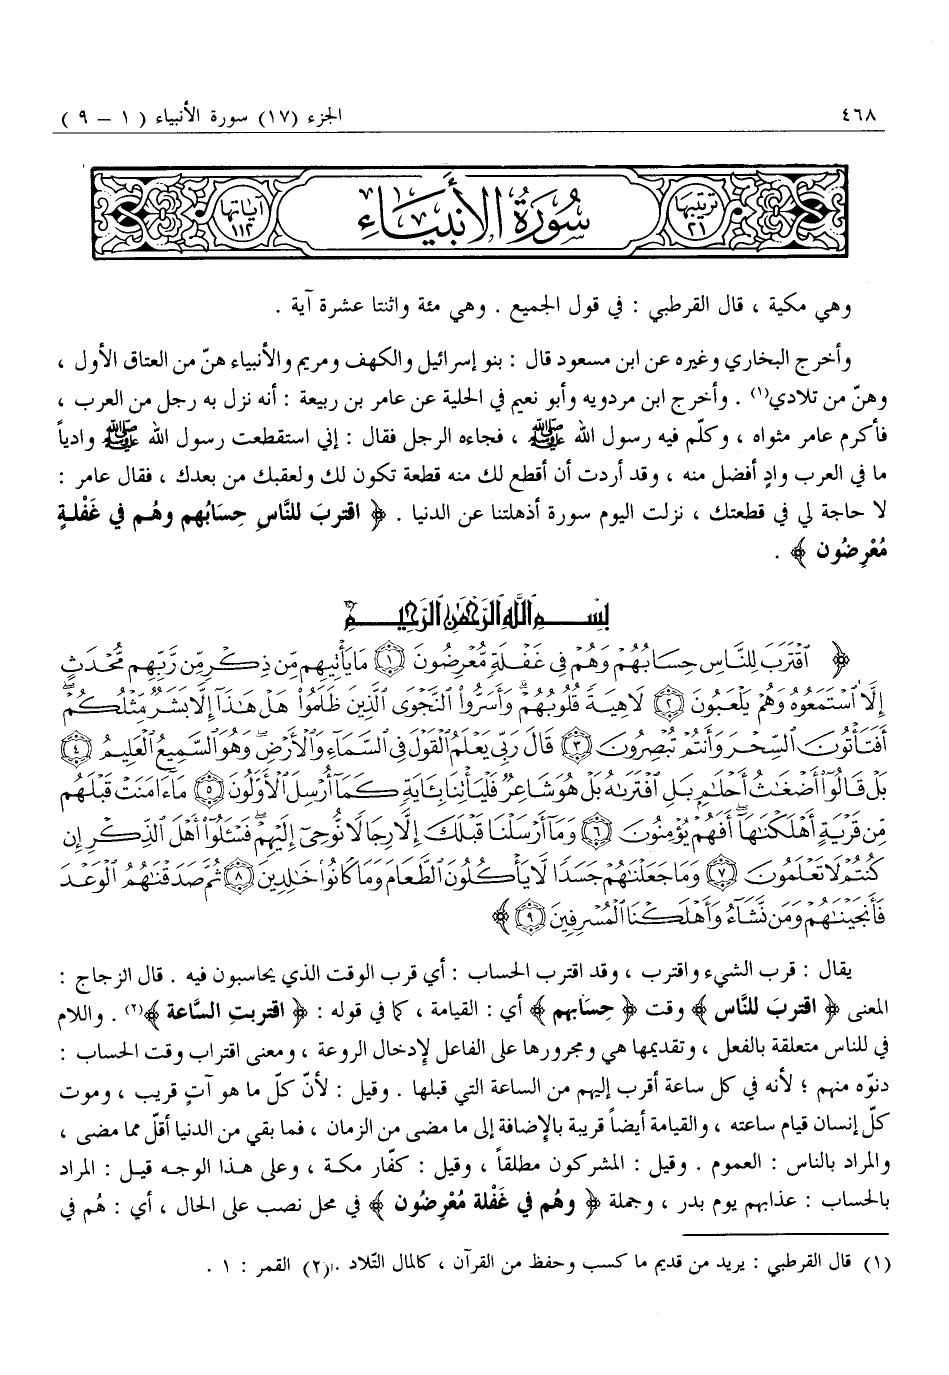 ٤٦٨ الجزء (١٧) سورة الأنبياء ( ١ – ٩ )
ترتيبها ٢١ سُورَةُ الأَنبيَاء آياتها ١١٢
وهي مكية ، قال القرطبي : في قول الجميع . وهي مئة واثنتا عشرة آية .
وأخرج البخاري وغيره عن ابن مسعود قال : بنو إسرائيل والكهف ومريم والأنبياء هنّ من العتاق الأول ،
وهنّ من تلادي(١) . وأخرج ابن مردويه وأبو نعيم في الحلية عن عامر بن ربيعة : أنه نزل به رجل من العرب ،
فأكرم عامر مثواه ، وكلّم فيه رسول الله ﷺ ، فجاءه الرجل فقال : إني استقطعت رسول الله ﷺ وادياً
ما في العرب وادٍ أفضل منه ، وقد أردت أن أقطع لك منه قطعة تكون لك ولعقبك من بعدك ، فقال عامر :
لا حاجة لي في قطعتك ، نزلت اليوم سورة أذهلتنا عن الدنيا . ﴿ اقتربَ للنَّاسِ حِسَابُهم وهُم في غَفْلةٍ
مُعْرِضُون ﴾ .
بِسْمِ اللَّهِ الرَّحْمَٰنِ الرَّحِيمِ
﴿ ٱقْتَرَبَ لِلنَّاسِ حِسَابُهُمْ وَهُمْ فِي غَفْلَةٍ مُّعْرِضُونَ ١ مَا يَأْتِيهِم مِّن ذِكْرٍ مِّن رَّبِّهِم مُّحْدَثٍ
إِلَّا ٱسْتَمَعُوهُ وَهُمْ يَلْعَبُونَ ٢ لَاهِيَةً قُلُوبُهُمْ ۗ وَأَسَرُّوا۟ ٱلنَّجْوَى ٱلَّذِينَ ظَلَمُوا۟ هَلْ هَٰذَآ إِلَّا بَشَرٌ مِّثْلُكُمْ ۖ
أَفَتَأْتُونَ ٱلسِّحْرَ وَأَنتُمْ تُبْصِرُونَ ٣ قَالَ رَبِّي يَعْلَمُ ٱلْقَوْلَ فِي ٱلسَّمَآءِ وَٱلْأَرْضِ ۖ وَهُوَ ٱلسَّمِيعُ ٱلْعَلِيمُ ٤
بَلْ قَالُوٓا۟ أَضْغَٰثُ أَحْلَٰمٍۭ بَلِ ٱفْتَرَىٰهُ بَلْ هُوَ شَاعِرٌ فَلْيَأْتِنَا بِـَٔايَةٍ كَمَآ أُرْسِلَ ٱلْأَوَّلُونَ ٥ مَآ ءَامَنَتْ قَبْلَهُم
مِّن قَرْيَةٍ أَهْلَكْنَٰهَآ ۖ أَفَهُمْ يُؤْمِنُونَ ٦ وَمَآ أَرْسَلْنَا قَبْلَكَ إِلَّا رِجَالًا نُّوحِيٓ إِلَيْهِمْ ۖ فَسْـَٔلُوٓا۟ أَهْلَ ٱلذِّكْرِ إِن
كُنتُمْ لَا تَعْلَمُونَ ٧ وَمَا جَعَلْنَٰهُمْ جَسَدًا لَّا يَأْكُلُونَ ٱلطَّعَامَ وَمَا كَانُوا۟ خَٰلِدِينَ ٨ ثُمَّ صَدَقْنَٰهُمُ ٱلْوَعْدَ
فَأَنجَيْنَٰهُمْ وَمَن نَّشَآءُ وَأَهْلَكْنَا ٱلْمُسْرِفِينَ ٩ ﴾
يقال : قرب الشيء واقترب ، وقد اقترب الحساب : أي قرب الوقت الذي يحاسبون فيه . قال الزجاج :
المعنى ﴿ اقتربَ للنَّاس ﴾ وقت ﴿ حِسَابهم ﴾ أي : القيامة ، كما في قوله : ﴿ اقتربتِ السَّاعة ﴾(٢) . واللام
في للناس متعلقة بالفعل ، وتقديمها هي ومجرورها على الفاعل لإدخال الروعة ، ومعنى اقتراب وقت الحساب :
دنوّه منهم ؛ لأنه في كل ساعة أقرب إليهم من الساعة التي قبلها . وقيل : لأنّ كلّ ما هو آتٍ قريب ، وموت
كلّ إنسان قيام ساعته ، والقيامة أيضاً قريبة بالإضافة إلى ما مضى من الزمان ، فما بقي من الدنيا أقلّ مما مضى ،
والمراد بالناس : العموم . وقيل : المشركون مطلقاً ، وقيل : كفّار مكة ، وعلى هذا الوجه قيل : المراد
بالحساب : عذابهم يوم بدر ، وجملة ﴿ وهُم في غَفْلة مُعْرضُون ﴾ في محل نصب على الحال ، أي : هُم في
(١) قال القرطبي : يريد من قديم ما كسب وحفظ من القرآن ، كالمال التّلاد . (٢) القمر : ١ .